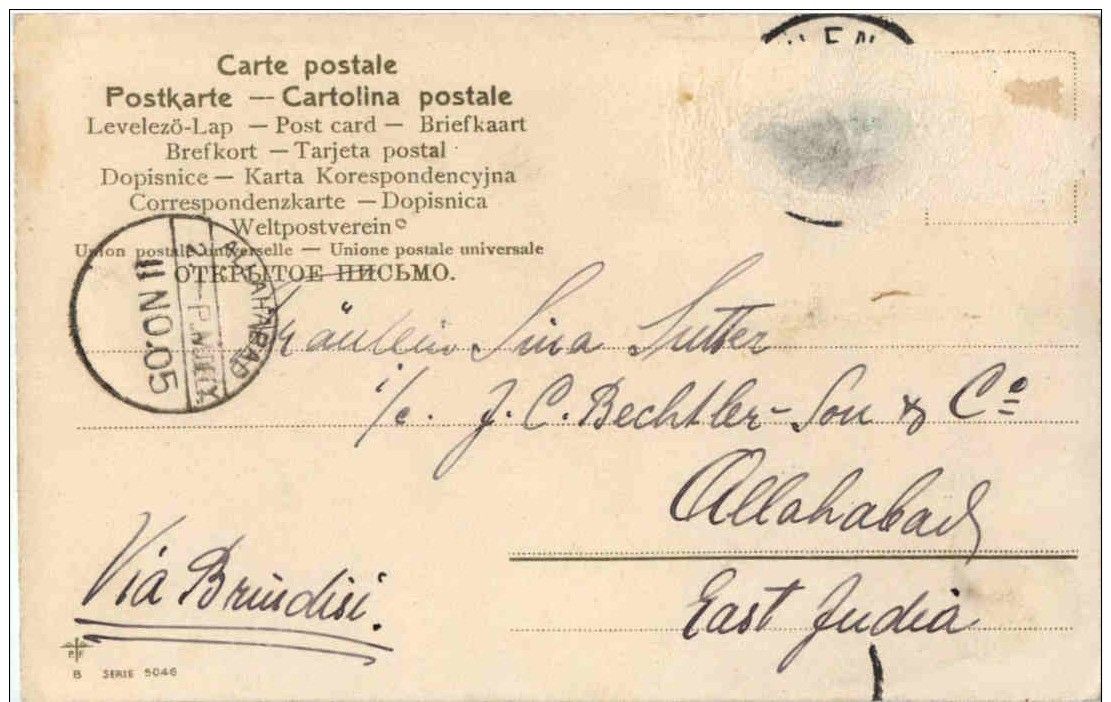 Carte postale
Postkarte — Cartolina postale
Levelező-Lap — Post card — Briefkaart
Brefkort — Tarjeta postal
Dopisnice — Karta Korespondencyjna
Correspondenzkarte — Dopisnica
Weltpostverein
Union postale universelle — Unione postale universale
ОТКРЫТОЕ ПИСЬМО.
ALLAHABAD
11 NO.05
Fräulein Lina Sutter
i/c. J. C. Bechtler-Son & Co
Allahabad
East India
Via Brindisi.
P F
B SERIE 5046